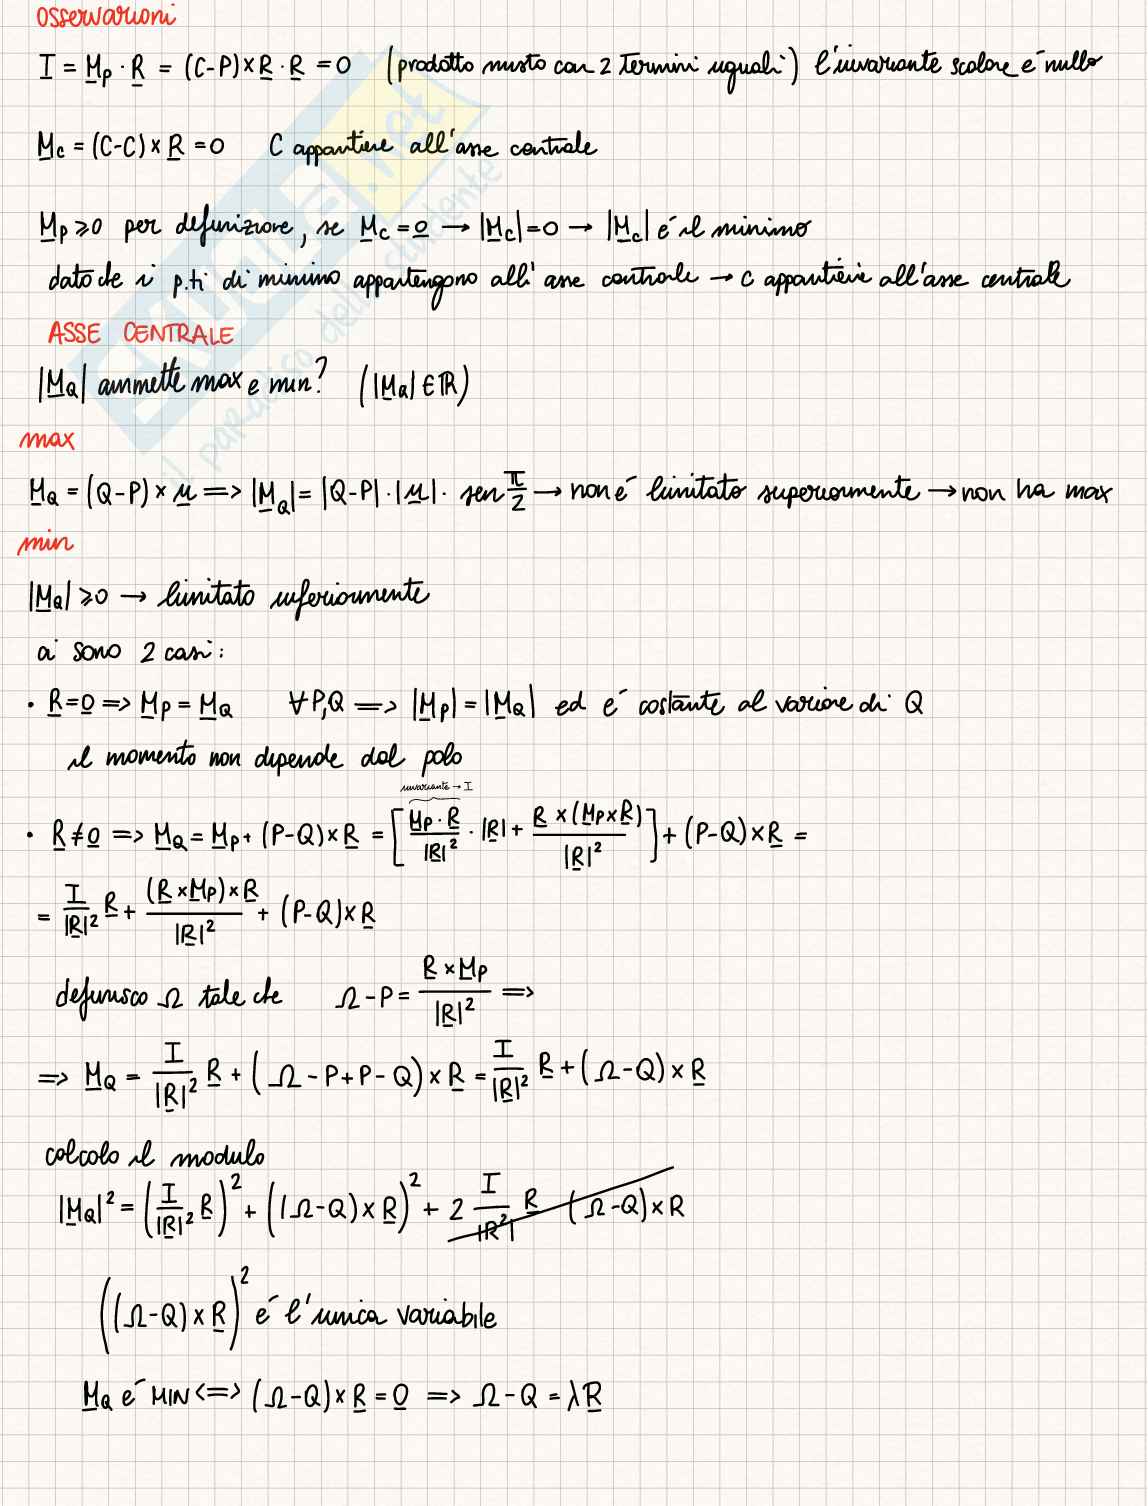 osservazioni
I = M̲p · R̲ = (C-P) × R̲ · R̲ = 0 (prodotto misto con 2 termini uguali) l'invariante scalare é nullo
M̲c = (C-C) × R̲ = 0 C appartiene all'asse centrale
M̲p ⩾ 0 per definizione, se M̲c = 0̲ → |M̲c| = 0 → |M̲c| é il minimo
dato che i p.ti di minimo appartengono all'asse centrale → C appartiene all'asse centrale
ASSE CENTRALE
|M̲Q| ammette max e min? (|M̲Q| ∈ ℝ)
max
M̲Q = (Q-P) × u̲ ⟹ |M̲Q| = |Q-P| · |u̲| · sen π/2 → non é limitato superiormente → non ha max
min
|M̲Q| ⩾ 0 → limitato inferiormente
ci sono 2 casi:
· R̲ = 0̲ ⟹ M̲p = M̲Q ∀ P,Q ⟹ |M̲p| = |M̲Q| ed é costante al variare di Q
il momento non dipende dal polo
invariante → I
· R̲ ≠ 0̲ ⟹ M̲Q = M̲p + (P-Q) × R̲ = [ M̲p · R̲ / |R̲|² · |R̲| + R̲ × (M̲p × R̲) / |R̲|² ] + (P-Q) × R̲ =
= I/|R̲|² R̲ + (R̲ × M̲p) × R̲ / |R̲|² + (P-Q) × R̲
definisco Ω tale che Ω - P = R̲ × M̲p / |R̲|² ⟹
⟹ M̲Q = I/|R̲|² R̲ + (Ω - P + P - Q) × R̲ = I/|R̲|² R̲ + (Ω-Q) × R̲
calcolo il modulo
|M̲Q|² = (I/|R̲|² R̲)² + ((Ω-Q) × R̲)² + 2 I/|R²| R̲ (Ω-Q) × R
((Ω-Q) × R̲)² é l'unica variabile
M̲Q é MIN <=> (Ω-Q) × R̲ = 0̲ ⟹ Ω - Q = λR̲